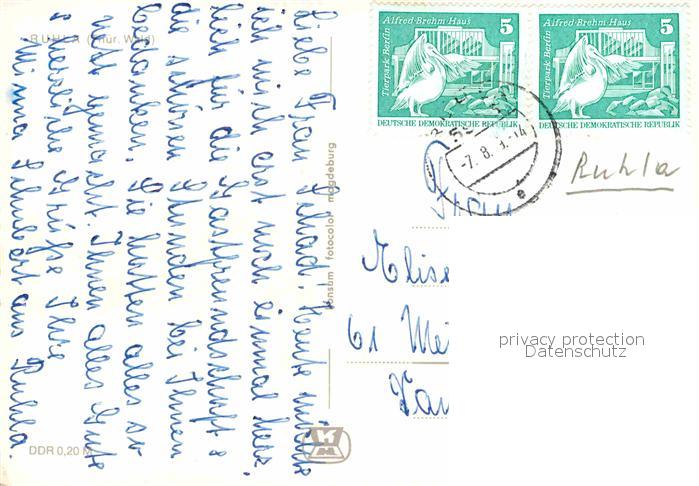 RUHLA (Thür. Wald)
Liebe Frau Schad! Heute möchte
ich mich erst noch einmal herz-
lich für die Gastfreundschaft &
die schönen Stunden bei Ihnen
bedanken. Sie hatten alles so
nett gemacht. Ihnen alles Gute
& herzliche Grüße Ihre
Minna aus Ruhla.
DDR 0,20 M
konsum fotocolor magdeburg
Alfred-Brehm-Haus 5
Tierpark Berlin
DEUTSCHE DEMOKRATISCHE REPUBLIK
Alfred-Brehm-Haus 5
Tierpark Berlin
DEUTSCHE DEMOKRATISCHE REPUBLIK
-7.8. -14
e
Ruhla
Frau
Elise
61 Mei
privacy protection
Datenschutz